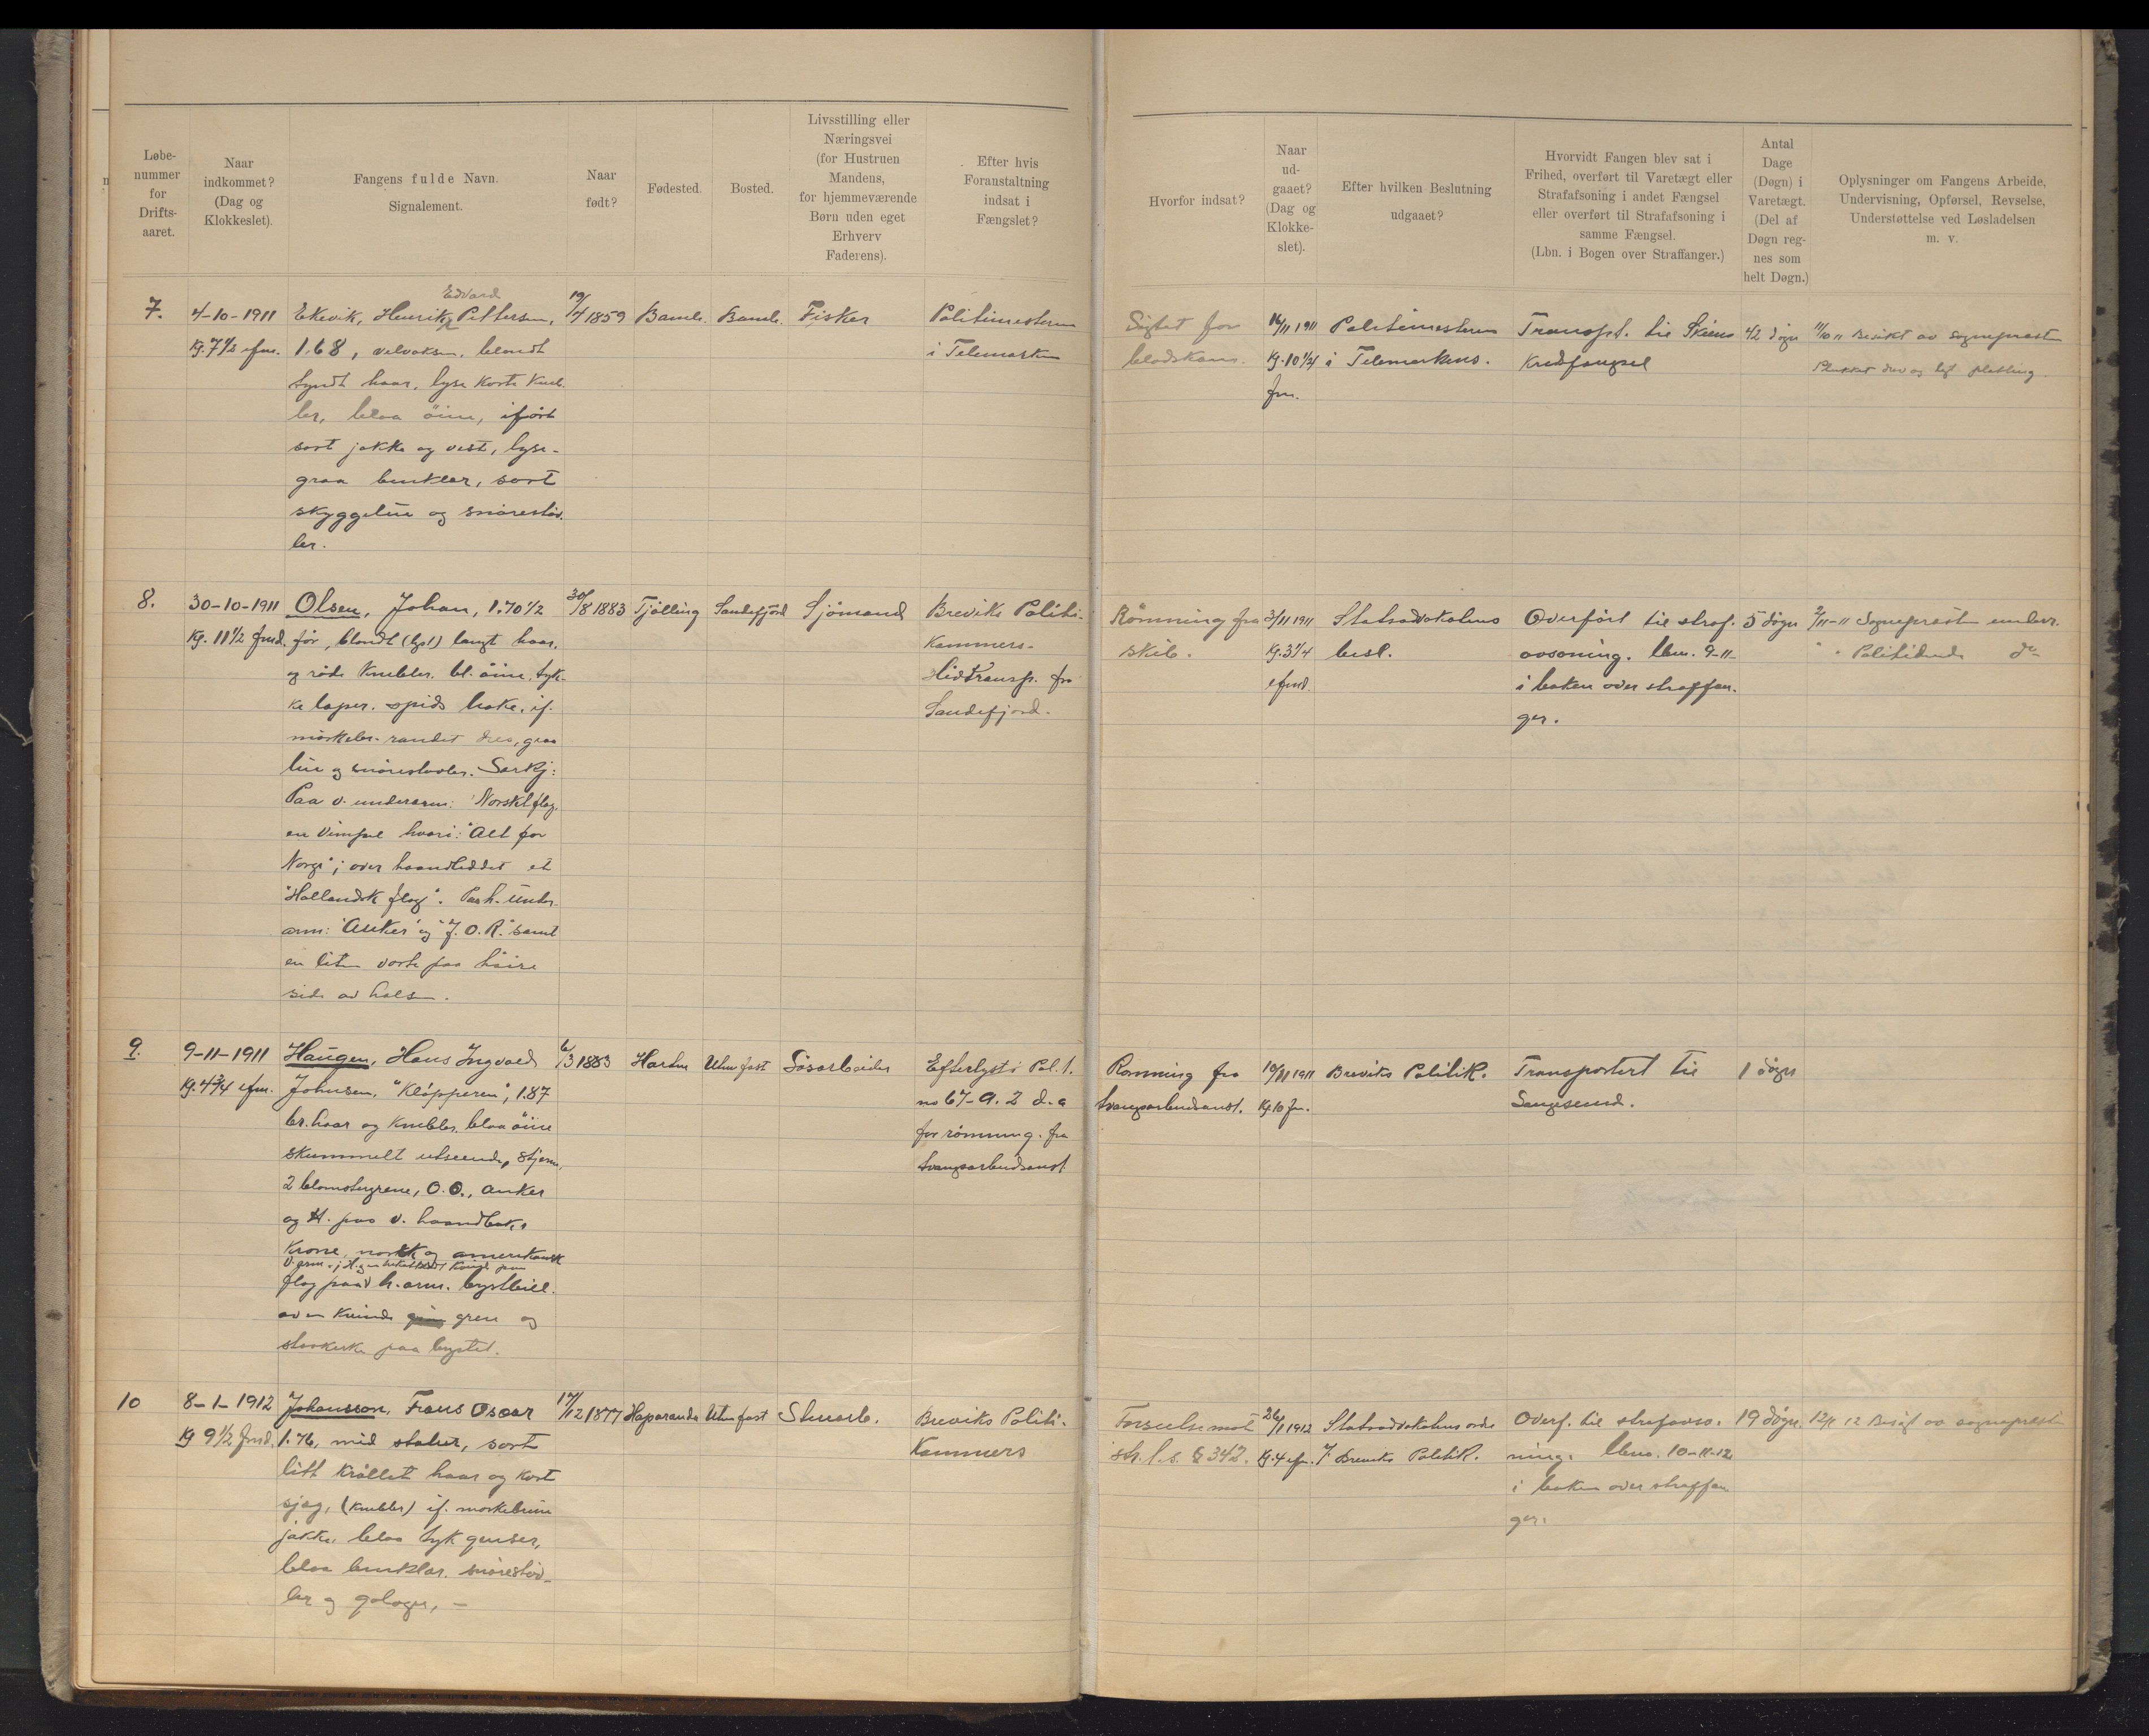 Løbe-
nummer
for
Drifts-
aaret.
Naar
indkommet?
(Dag og
Klokkeslet).
Fangens fulde Navn.
Signalement.
Naar
født?
Fødested.
Bosted.
Livsstilling eller
Næringsvei
(for Hustruen
Mandens,
for hjemmeværende
Børn uden eget
Erhverv
Faderens).
Efter hvis
Foranstaltning
indsat i
Fængslet?
Hvorfor indsat?
Naar
ud-
gaaet?
(Dag og
Klokke-
slet).
Efter hvilken Beslutning
udgaaet?
Hvorvidt Fangen blev sat i
Frihed, overført til Varetægt eller
Strafafsoning i andet Fængsel
eller overført til Strafafsoning i
samme Fængsel.
(Lbn. i Bogen over Straffanger.)
Antal
Dage
(Døgn) i
Varetægt.
(Del af
Døgn reg-
nes som
helt Døgn.)
Oplysninger om Fangens Arbeide,
Undervisning, Opførsel, Revselse,
Understøttelse ved Løsladelsen
m. v.
7.
4-10-1911
Kl. 7½ efm.
Edvard
Ekevik, Henrik Pettersen,
1.68, velvoksen, blondt
tyndt haar, lyse korte kneb-
ler, blaa öine, iført
sort jakke og vest, lyse-
graa benklær, sort
skyggelue og snörestöv-
ler.
19/4 1859
Bamle.
Bamle.
Fisker
Politimesteren
i Telemarken
Sigtet for
blodskam.
14/11 1911
Kl. 10¼
fm.
Politimesteren
i Telemarkens.
Transpt. til Skiens
Kredsfængsel
42 dögn
11/10 11 Besökt av sogneprest
Plukket drev og lagt pletting
8.
30-10-1911
Kl. 11½ fmd.
Olsen, Johan, 1.70½
før, blondt (lyst) langt haar,
og röde knebler. bl. öine, tyk-
ke læper. spids hake. if.
mörkebl. randet dres, graa
lue og snörestövler. Særkj:
Paa v. underarm: "Norsk flag,
en vimpel hvori: "Alt for
Norge"; over haandleddet et
"Hollandsk flag". Paa h. under-
arm: "Anker" og "J. O. R." samt
en liten vorte paa höire
side av halsen.
30/8 1883
Tjölling
Sandefjord
Sjömand
Breviks Politi-
kammers-
Hidtransp. fra
Sandefjord.
Römning fra
skib.
3/11 1911
Kl. 3¼
efmd.
Statsadvokatens
besl.
Overført til straf-
avsoning. lbn. 9-11-
i boken over straffan-
ger.
5 dögn
2/11-11 Sogneprest underv.
" " Politidende do
9.
9-11-1911
Kl. 4¾ efm.
Haugen, Hans Ingvald
Johnsen, "Klöpperen", 1.87
br. haar og knebler, blaa öine
skummelt utseende, stjerne,
2 blomstergrene, O.O., anker
og H. paa v. haandbak.
Krone, norsk og amerikansk
flag paa h. arm. brystbill.
av en kvinde gren og
stavkirke paa brystet.
6/3 1883
Uten fast
Efterlyst i Pol.t.
no 67-9.2 d.a
for römning. fra
tvangsarbeidsanst.
Rømning fra
tvangsarbeidsanst.
10/11 1911
Kl. 10 fm.
Breviks Politik.
Transportert til
Langesund.
1 dögn
10
8-1-1912
Kl 9½ fmd.
Johansson, Frans Oscar
1.76, mid statur, sort
litt krøllet haar og kort
skjæg, (knebler) if. mörkebrun
jakke, blaa tyk genser,
blaa benklær. snörestöv-
ler og galoger, -
17/12 1877
Haparanda
Uten fast
Breviks Politi-
Kammers
Forseelse mot
str. l. s. § 342.
26/1 1912
Kl. 4 efm.
Statsadvokatens ordre
Breviks Politik.
Overf. til strafavso-
ning. lbno. 10-11-12
i boken over straffan
ger.
19 dögn.
12/1 12 Besøgt av sogneprest